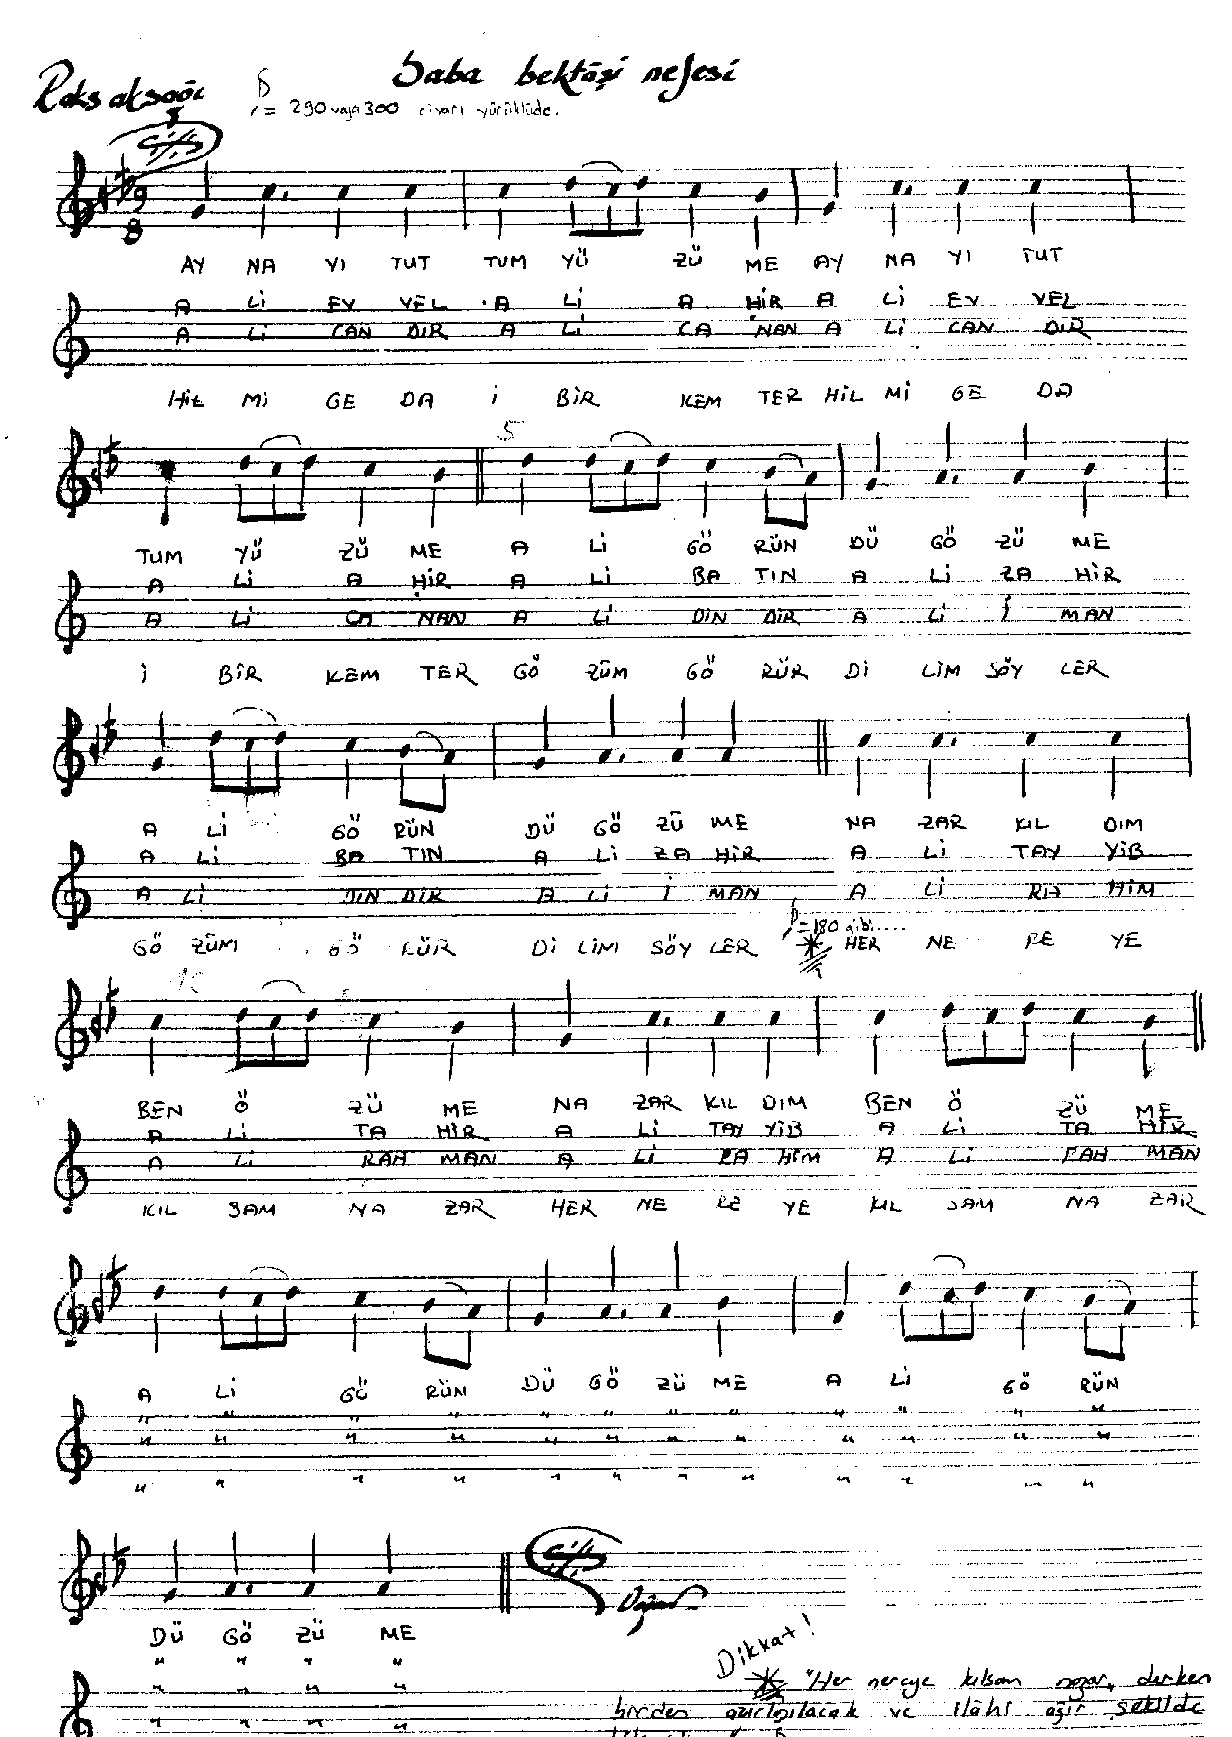 Saba bektâşi nefesi
Raks aksağı
= 290 veya 300 civarı yürüklüde.
9
8
AY NA YI TUT TUM YÜ ZÜ ME AY NA YI TUT
A Lİ EV VEL A Lİ A HİR A Lİ EV VEL
A Lİ CAN DIR A Lİ CA NAN A Lİ CAN DIR
HİL Mİ GE DA İ BİR KEM TER HİL Mİ GE DA
5
TUM YÜ ZÜ ME A Lİ GÖ RÜN DÜ GÖ ZÜ ME
A Lİ A HİR A Lİ BA TIN A Lİ ZA HİR
A Lİ CA NAN A Lİ DİN DİR A Lİ İ MAN
İ BİR KEM TER GÖ ZÜM GÖ RÜR Dİ LİM SÖY LER
A Lİ GÖ RÜN DÜ GÖ ZÜ ME NA ZAR KIL DIM
A Lİ BA TIN A Lİ ZA HİR A Lİ TAY YİB
A Lİ DİN DİR A Lİ İ MAN A Lİ RA HİM
= 180 gibi....
GÖ ZÜM GÖ RÜR Dİ LİM SÖY LER * HER NE RE YE
BEN Ö ZÜ ME NA ZAR KIL DIM BEN Ö ZÜ ME
A Lİ TA HİR A Lİ TAY YİB A Lİ TA HİR
A Lİ RAH MAN A Lİ RA HİM A Lİ RAH MAN
KIL SAM NA ZAR HER NE RE YE KIL SAM NA ZAR
A Lİ GÖ RÜN DÜ GÖ ZÜ ME A Lİ GÖ RÜN
" " " " " " " " " " " "
" " " " " " " " " " " "
" " " " " " " " " " " "
DÜ GÖ ZÜ ME
" " " "
" " " "
" " " "
Dikkat!
* "Her nereye kılsam nazar" derken
birden ağırlaşılacak ve ilâhi ağır şekilde